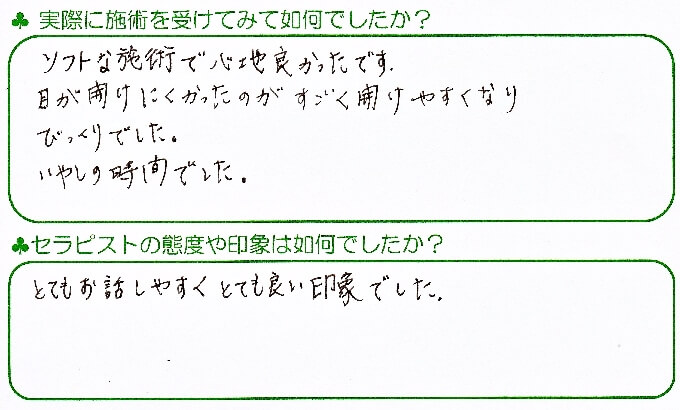 ♣ 実際に施術を受けてみて如何でしたか？
ソフトな施術で心地良かったです.
目が開けにくかったのがすごく開けやすくなり
びっくりでした。
いやしの時間でした。
♣セラピストの態度や印象は如何でしたか？
とてもお話しやすくとても良い印象でした.